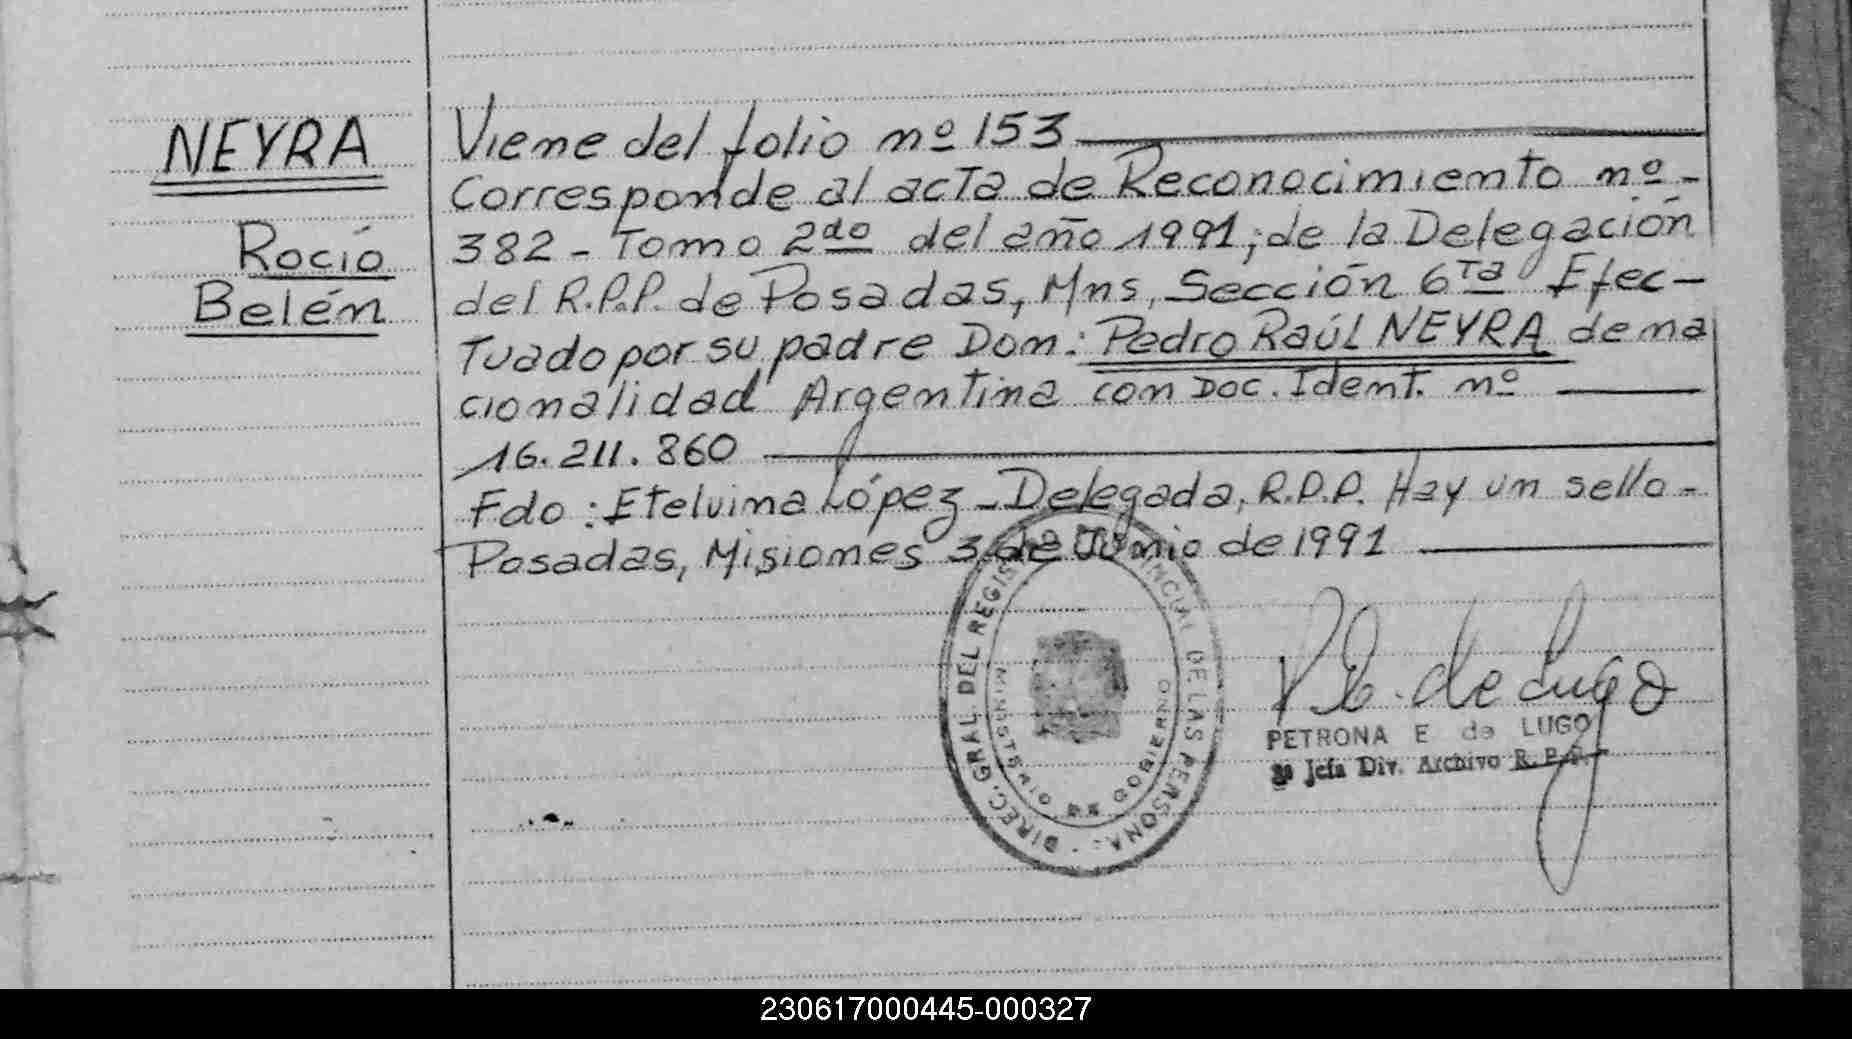 NEYRA
Rocío
Belén
Viene del folio nº 153
Corresponde al acta de Reconocimiento nº -
382 - Tomo 2do del año 1991; de la Delegación
del R.P.P. de Posadas, Mns, Sección 6ta Efec-
tuado por su padre Don: Pedro Raúl NEYRA de na
cionalidad Argentina con Doc. Ident. nº
16.211.860
Fdo: Etelvina López - Delegada, R.P.P. Hay un sello -
Posadas, Misiones 3 de Junio de 1991
DIREC. GRAL. DEL REGISTRO PROVINCIAL DE LAS PERSONAS
MINISTERIO DE GOBIERNO
P. E. de Lugo
PETRONA E de LUGO
Jefa Div. Archivo R.P.P.
230617000445-000327